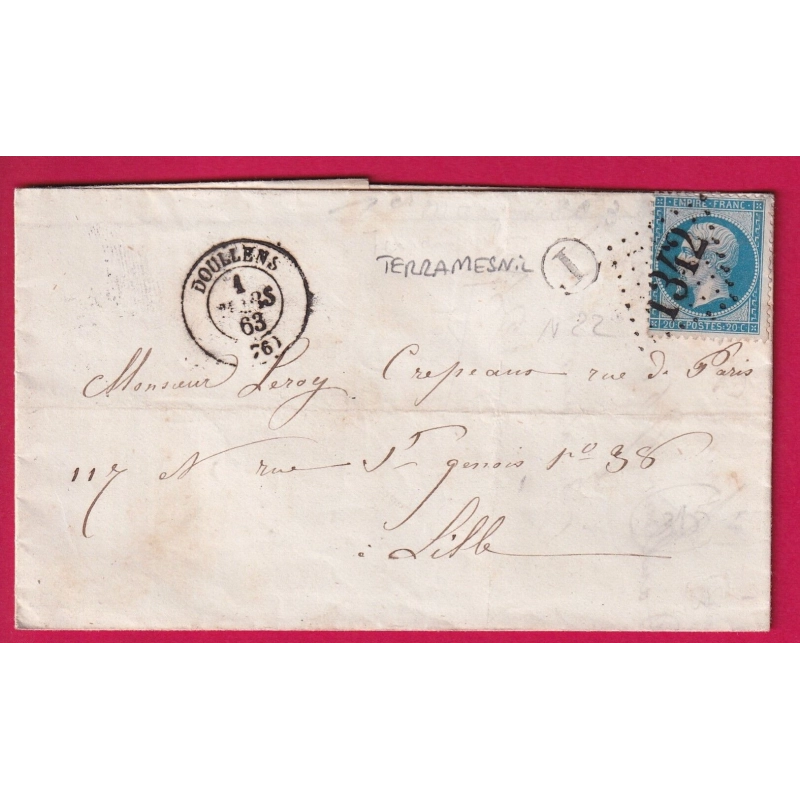 EMPIRE FRANC
1342
20 C POSTES 20 C
DOULLENS
1
MARS
63
(76)
TERRAMESNIL
I
N 22
Monsieur Leroy Crepeaux rue de Paris
117 N rue St genois No 38
à Lille